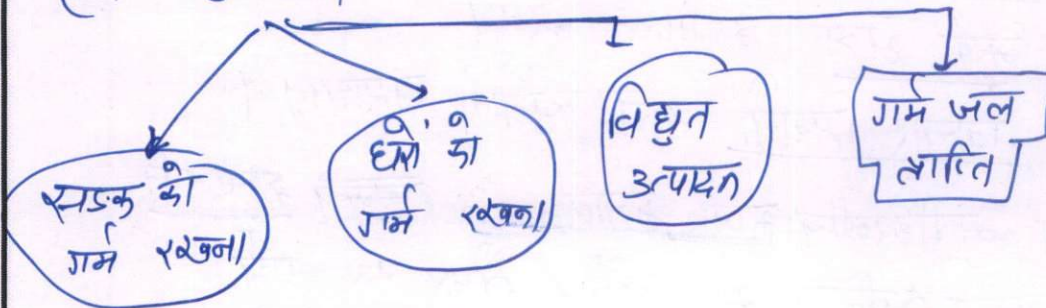 सड़क को
गर्म रखना
घरों को
गर्म रखना
विद्युत
उत्पादन
गर्म जल
प्राप्ति